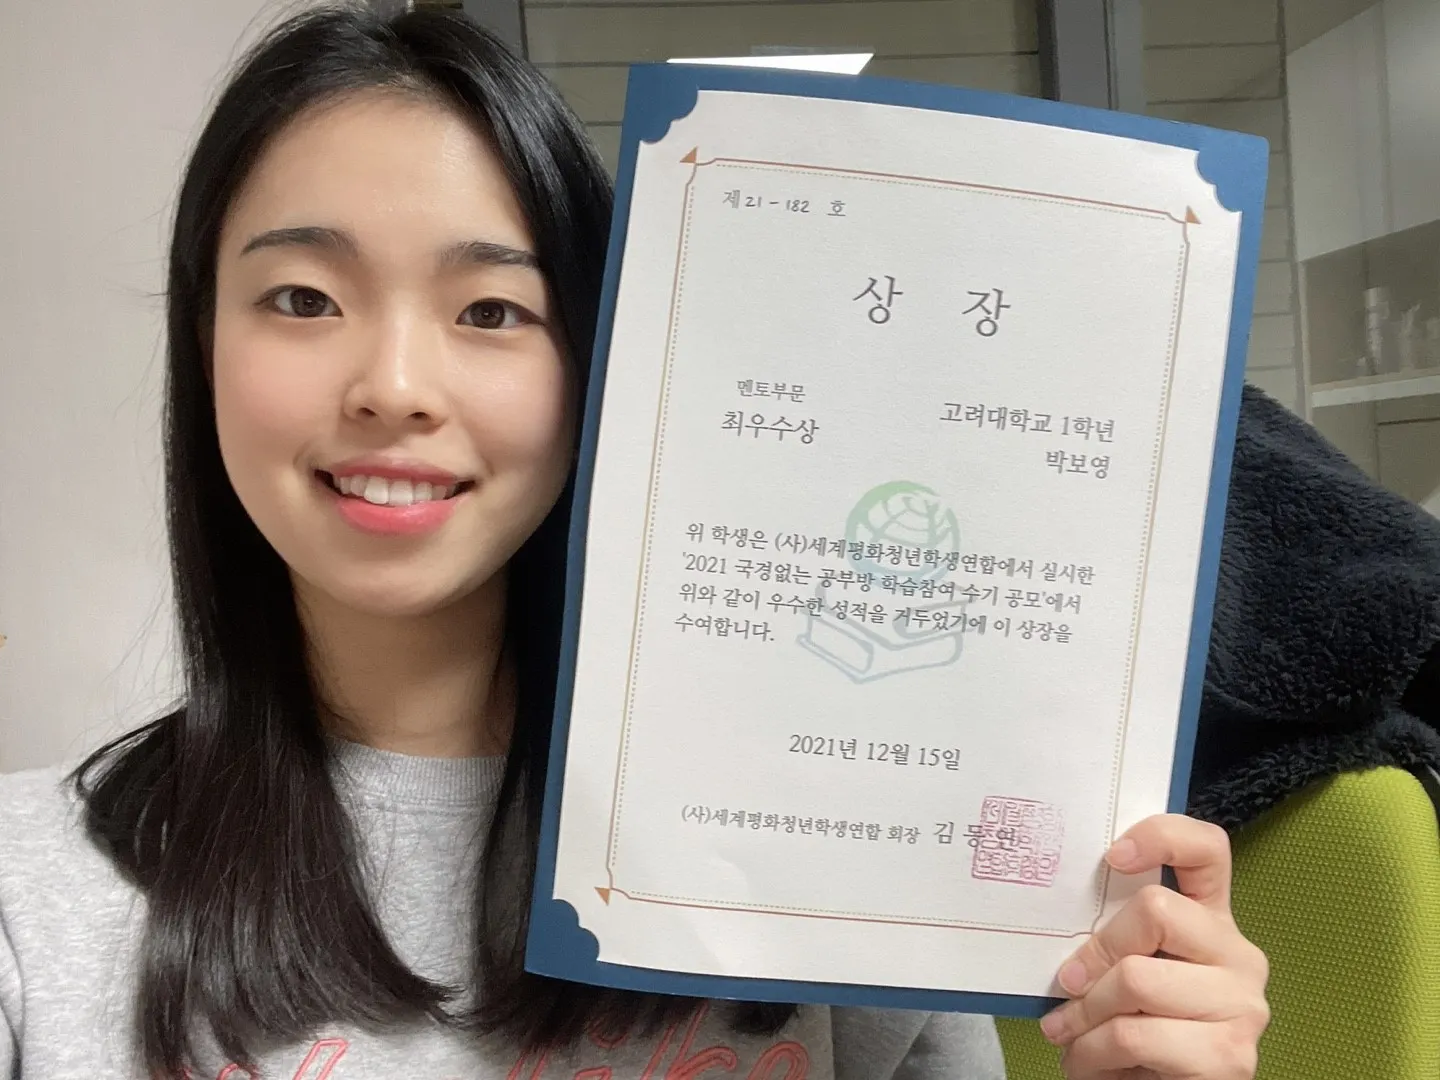 제 21 - 182 호
상 장
멘토부문
최우수상
고려대학교 1학년
박보영
위 학생은 (사)세계평화청년학생연합에서 실시한
'2021 국경없는 공부방 학습참여 수기 공모'에서
위와 같이 우수한 성적을 거두었기에 이 상장을
수여합니다.
2021년 12월 15일
(사)세계평화청년학생연합 회장 김 동 연